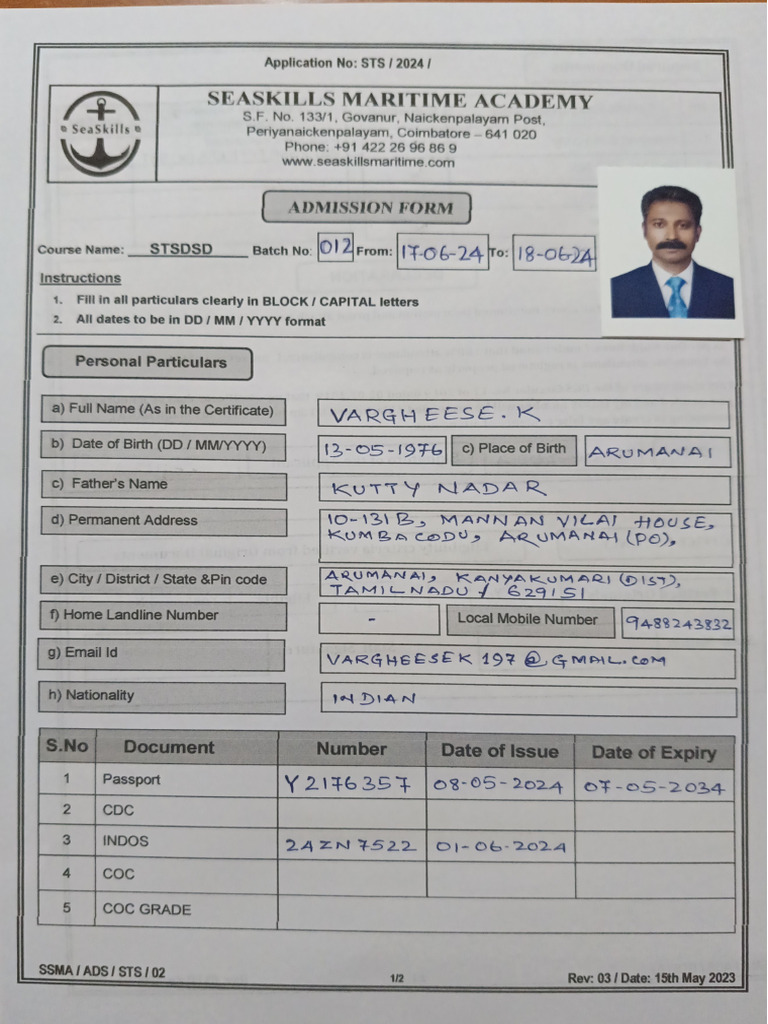 Application No: STS / 2024 /
SeaSkills
SEASKILLS MARITIME ACADEMY
S.F. No. 133/1, Govanur, Naickenpalayam Post,
Periyanaickenpalayam, Coimbatore – 641 020
Phone: +91 422 26 96 86 9
www.seaskillsmaritime.com
ADMISSION FORM
Course Name: STSDSD Batch No: 012 From: 17-06-24 To: 18-06-24
Instructions
1. Fill in all particulars clearly in BLOCK / CAPITAL letters
2. All dates to be in DD / MM / YYYY format
Personal Particulars
a) Full Name (As in the Certificate) VARGHEESE. K
b) Date of Birth (DD / MM/YYYY) 13-05-1976 c) Place of Birth ARUMANAI
c) Father's Name KUTTY NADAR
d) Permanent Address 10-131B, MANNAN VILAI HOUSE,
KUMBACODU, ARUMANAI (PO),
e) City / District / State &Pin code ARUMANAI, KANYAKUMARI (DIST),
TAMILNADU / 629151
f) Home Landline Number - Local Mobile Number 9488243832
g) Email Id VARGHEESEK197@GMAIL.COM
h) Nationality INDIAN
S.No Document Number Date of Issue Date of Expiry
1 Passport Y2176357 08-05-2024 07-05-2034
2 CDC
3 INDOS 24ZN7522 01-06-2024
4 COC
5 COC GRADE
SSMA / ADS / STS / 02 1/2 Rev: 03 / Date: 15th May 2023